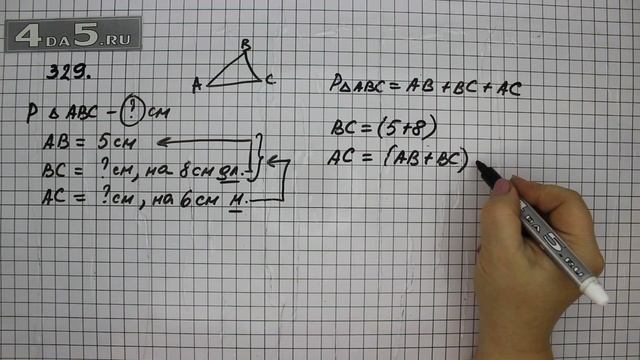 4DA5.RU
329.
B
A
C
P △ ABC – ? см
AB = 5 см
BC = ? см, на 8 см дл.
AC = ? см, на 6 см м.
P△ABC = AB + BC + AC
BC = (5+8)
AC = (AB + BC)
4DA5.RU